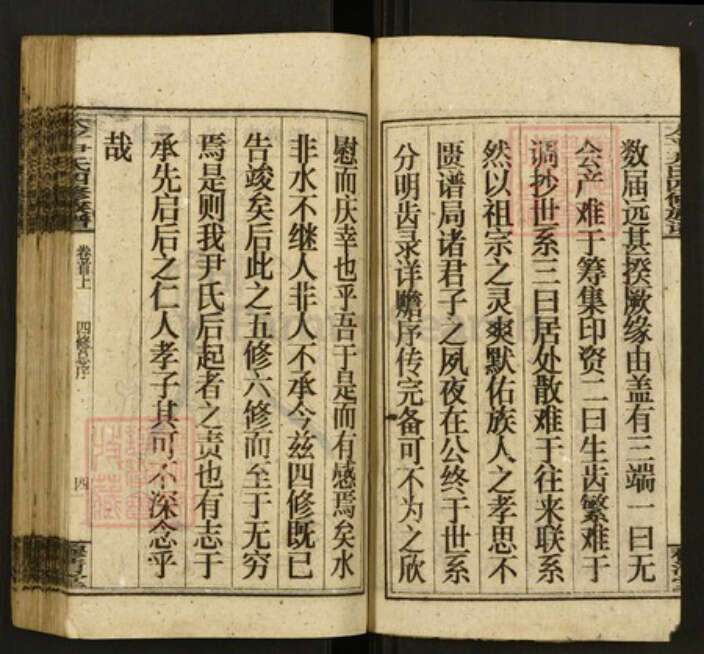 数届远其揆厥缘由盖有三端一曰无
公产难于筹集印资二曰生齿繁难于
调抄世系三曰居处散难于往来联系
然以祖宗之灵爽默佑族人之孝思不
匮谱局诸君子之夙夜在公终于世系
分明齿录详赡序传完备可不为之欣
慰而庆幸也乎吾于是而有感焉矣水
非水不继人非人不承今兹四修既已
告竣矣后此之五修六修而至于无穷
焉是则我尹氏后起者之责也有志于
承先启后之仁人孝子其可不深念乎
哉
尹氏四修族谱
卷首上
四修总序
四